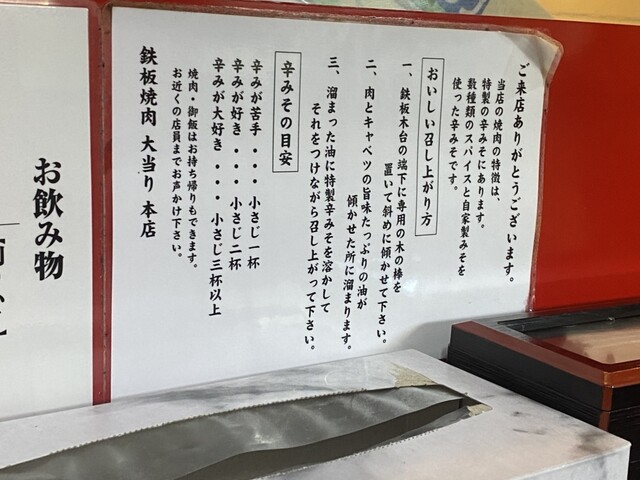 ご来店ありがとうございます。
当店の焼肉の特徴は、
特製の辛みそにあります。
数種類のスパイスと自家製みそを
使った辛みそです。
おいしい召し上がり方
一、鉄板木台の端下に専用の木の棒を
置いて斜めに傾かせて下さい。
二、肉とキャベツの旨味たっぷりの油が
傾かせた所に溜まります。
三、溜まった油に特製辛みそを溶かして
それをつけながら召し上がって下さい。
辛みその目安
辛みが苦手・・・小さじ一杯
辛みが好き・・・小さじ二杯
辛みが大好き・・・小さじ三杯以上
焼肉・御飯はお持ち帰りもできます。
お近くの店員までお声かけ下さい。
鉄板焼肉 大当り 本店
お飲み物